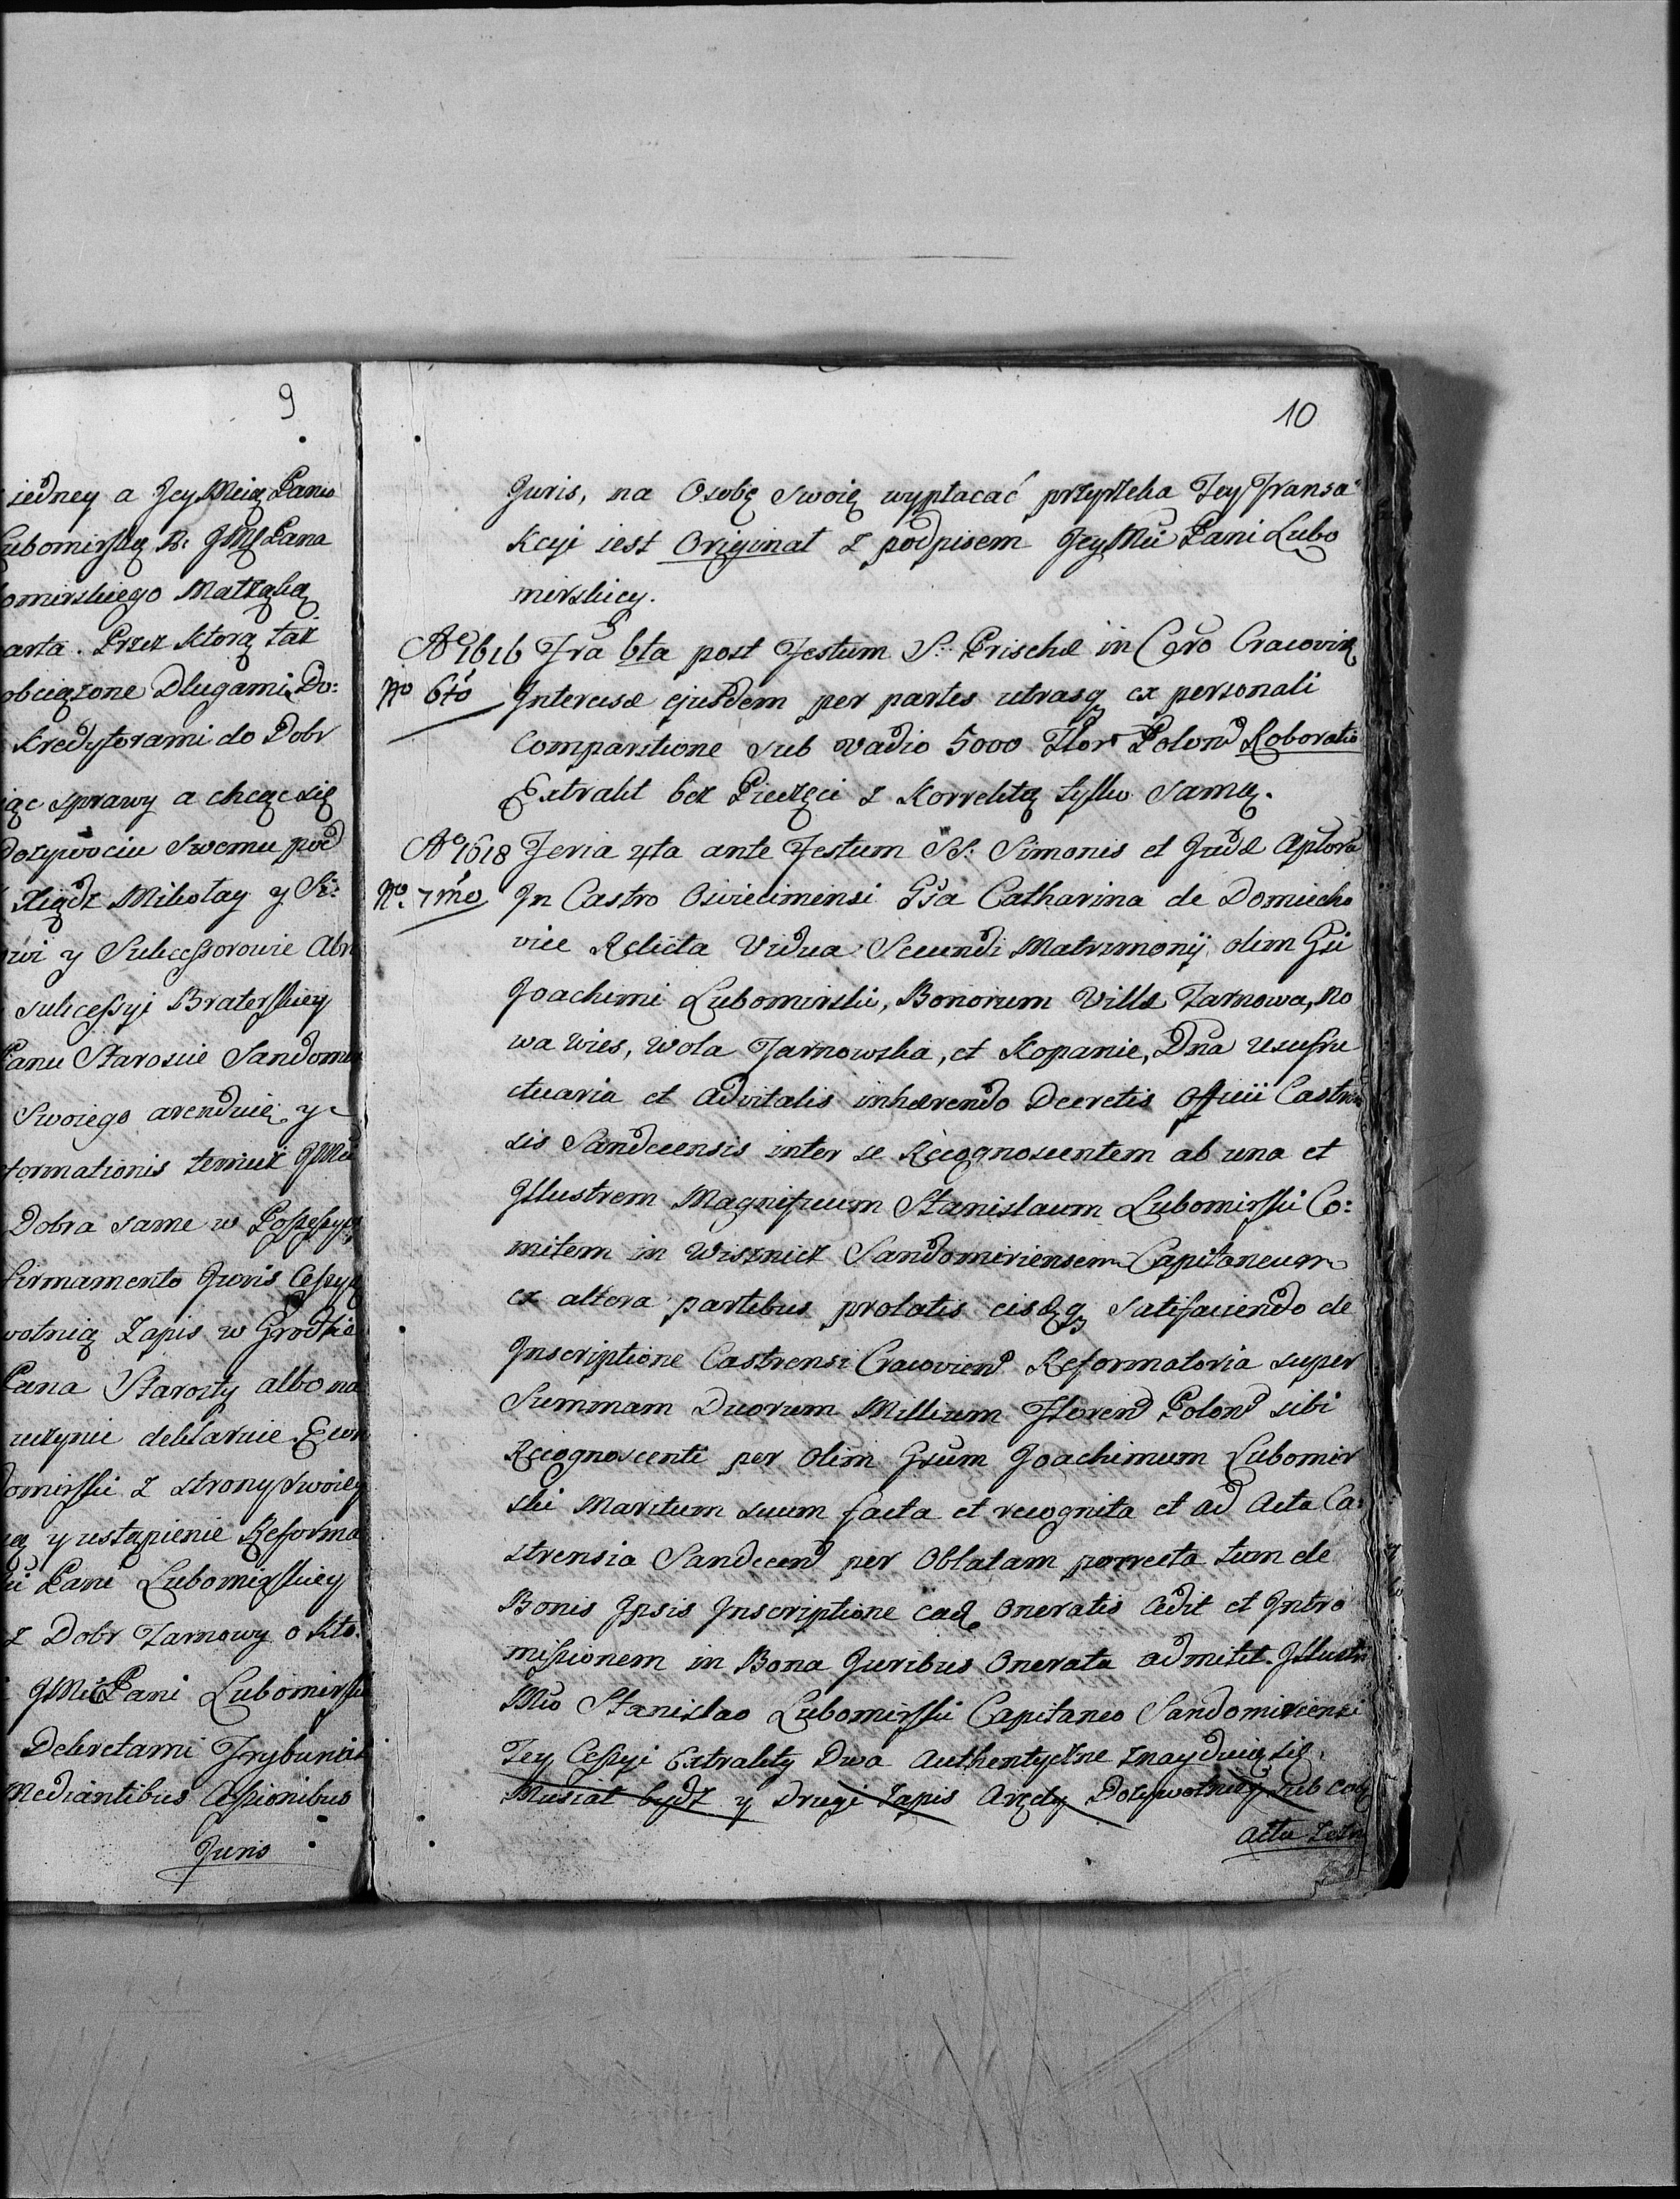 9
iedney a Jey Mcią Panu
Lubomirską B: JMS Pana
omirskiego Matrąłką
arta. Przez ktorą taż
obciązone Dlugami, Do:
Kredytorami do Dobr
iąc sprawy a chcąc się
Dozywociu Swemu pod
Xiądz Mikołay y St:
owi y Sukcessorowie Abr
sukcessyi Braterskiey
Panu Staroscie Sandome
Swoiego arenduię y
formationis teniuż JMci
Dobra same w Possessyą
firmamento Juris Cessyą
wotnią Zapis w Grodzie
Pana Starosty albo na
uczynić deklaruie. Econ
omirski z strony swoiey
ią y ustąpienie Reforma
ci Pani Lubomirskiey
z Dobr Zarnowy o kto.
JMci Pani Lubomirski
Dekretami Trybunal
Mediantibus Cessionibus
Juris
10
Juris, na Osobę swoię wypłacać przyrzeka Tey Transa
kcyi iest Originał z podpisem JeyMci Pani Lubo
mirskiey.
Ao 1616 Fra 6ta post Festum S: Priscæ in Cgro Cracovię
No 6to Intercisæ ejusdem per partes utrasq ex personali
Comparitione sub vadio 5000 Flor Polon Roboratio
Extrakt bez Pieczęci z Korrektą tylko samą.
Ao 1618 Feria 4ta ante Festum SS: Simonis et Judæ Aptoru
No. 7mo In Castro Osviecimensi Gsa Catharina de Domiecho
vice Relicta Vidua Secundi Matrimonij olim Gsi
Joachimi Lubomirski, Bonorum Villæ Zarnowa, No
wa wies, Wola Zarnowska, et Kopanie, Dna usufru
ctuaria et Advitalis inhærendo Decretis Officii Castren
sis Sandecensis inter se Recognoscentem ab una et
Illustrem Magnificum Stanislaum Lubomirski Co:
mitem in Wisznicz Sandomiriensem Capitaneum
ex altera partibus prolatis eisdq Satisfaciendo de
Inscriptione Castrensi Cracovien Reformatoria super
Summam Duorum Millium Floren Polon sibi
Recognoscenti per olim Gsum Joachimum Lubomir
ski Maritum suum facta et recognita et ad Acta Ca:
strensia Sandecen per Oblatam porrecta tum de
Bonis Ipsis Inscriptione ead Oneratis Cedit et Intro
missionem in Bona Juribus Onerata admitit. Illustri
Mco Stanislao Lubomirski Capitaneo Sandomiriensi
Tey Cessyi Extrakty Dwa Authentyczne znayduią się.
Musiał bydź y Drugi Zapis Arędy Dożywotniey sub eod
actu Zezn